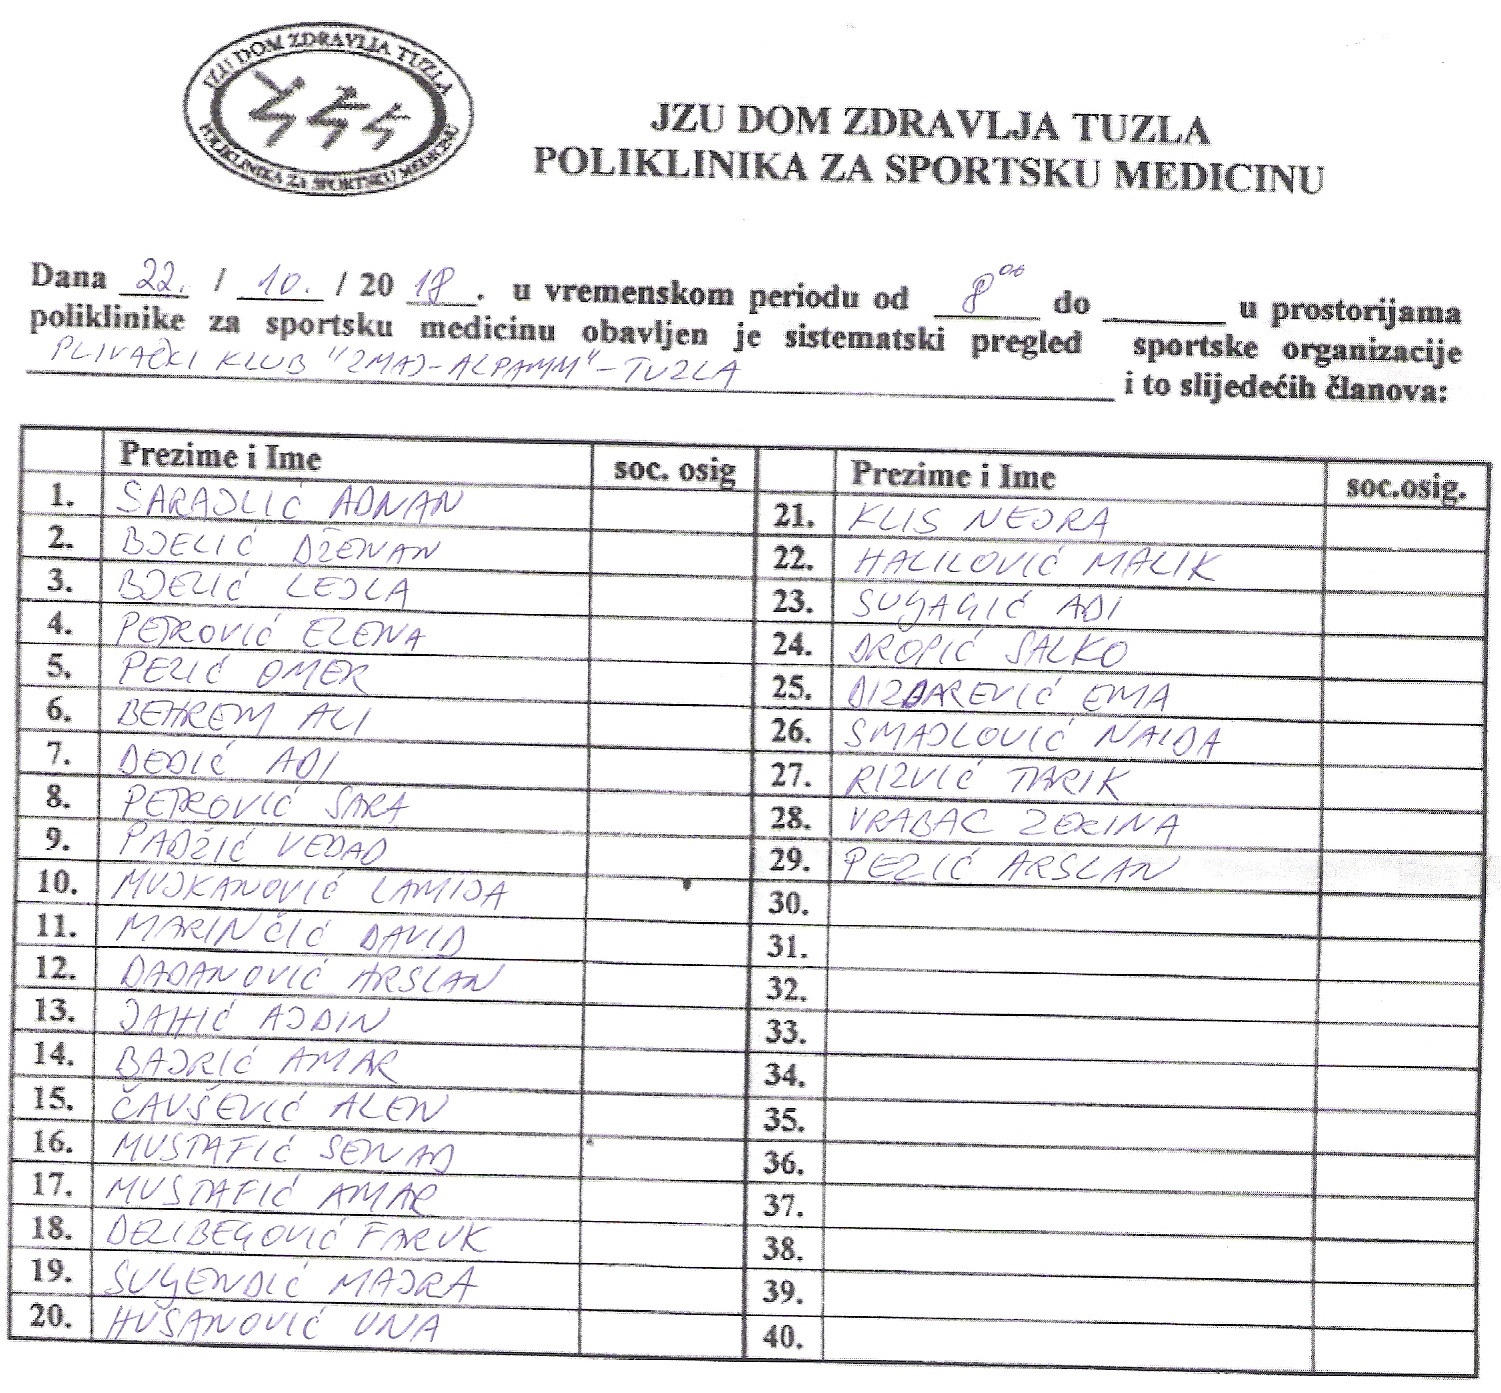 JZU DOM ZDRAVLJA TUZLA
POLIKLINIKA ZA SPORTSKU MEDICINU
JZU DOM ZDRAVLJA TUZLA
POLIKLINIKA ZA SPORTSKU MEDICINU
Dana 22. / 10. / 20 18. u vremenskom periodu od 8⁰⁰ do ______ u prostorijama
poliklinike za sportsku medicinu obavljen je sistematski pregled sportske organizacije
PLIVAČKI KLUB "ZMAJ-ALPAMM"-TUZLA i to slijedećih članova:
Prezime i Ime soc. osig Prezime i Ime soc.osig.
1. SARAJLIĆ ADNAN 21. KLIS NEJRA
2. BJELIĆ DŽENAN 22. HALILOVIĆ MALIK
3. BJELIĆ LEJLA 23. SULJAGIĆ ADI
4. PETROVIĆ ELENA 24. DROPIĆ SALKO
5. PEZIĆ OMER 25. DIZDAREVIĆ EMA
6. BEHREM ALI 26. SMAJLOVIĆ NAIDA
7. DEDIĆ ADI 27. RIZVIĆ TARIK
8. PETROVIĆ SARA 28. VRABAC ZERINA
9. PADŽIĆ VEDAD 29. PEZIĆ ARSLAN
10. MUJKANOVIĆ LAMIJA 30.
11. MARINČIĆ DAVID 31.
12. DADANOVIĆ ARSLAN 32.
13. JAHIĆ AJDIN 33.
14. BAJRIĆ AMAR 34.
15. ČAUŠEVIĆ ALEN 35.
16. MUSTAFIĆ SENAD 36.
17. MUSTAFIĆ AMAR 37.
18. DELIBEGOVIĆ FARUK 38.
19. SULJENDIĆ MAJRA 39.
20. HUSANOVIĆ UNA 40.